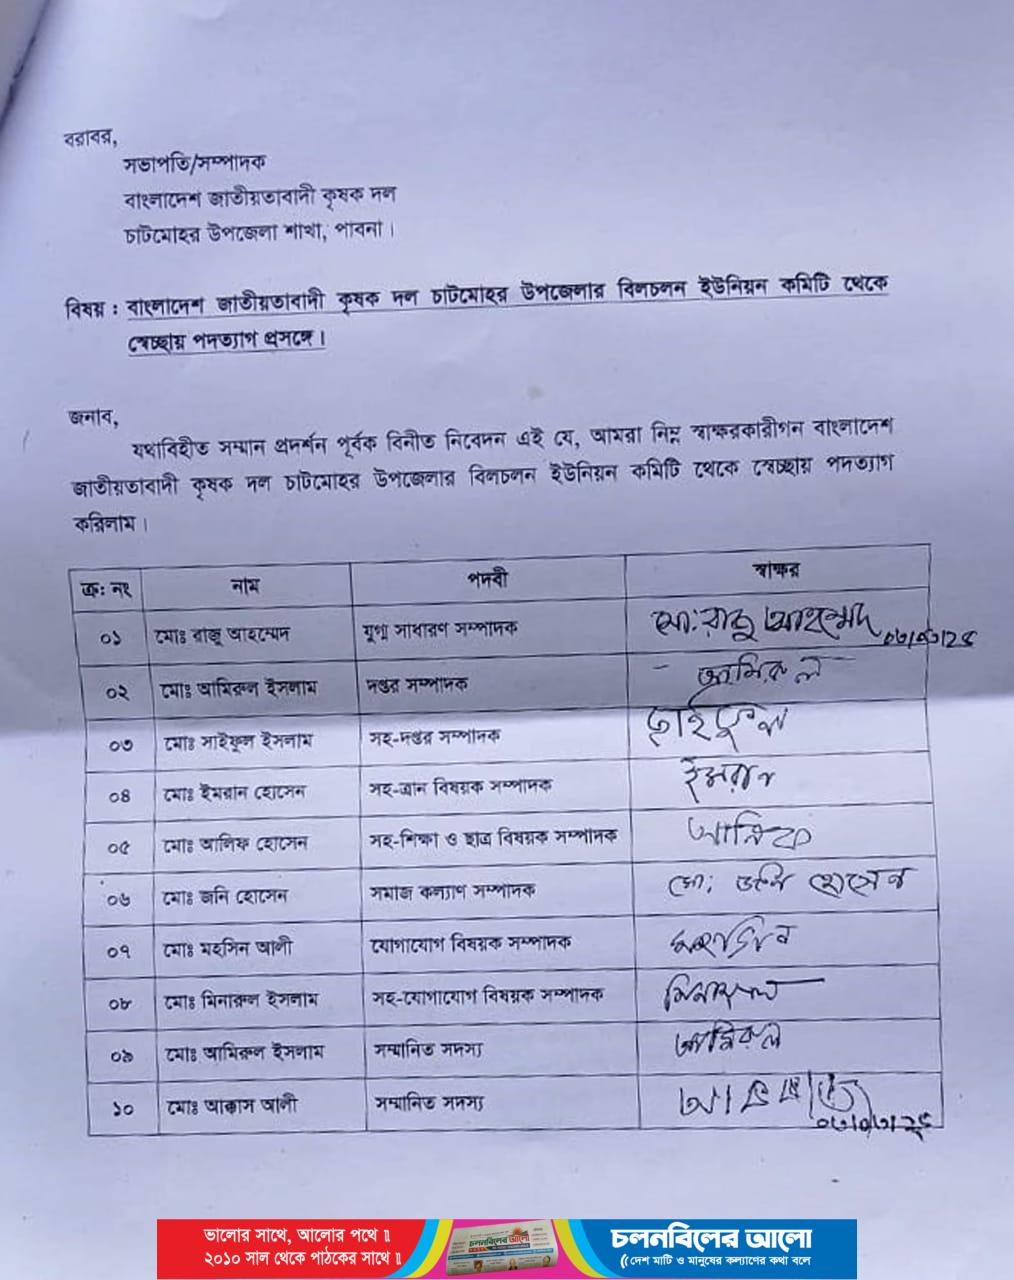 বরাবর,
সভাপতি/সম্পাদক
বাংলাদেশ জাতীয়তাবাদী কৃষক দল
চাটমোহর উপজেলা শাখা, পাবনা।
বিষয় : বাংলাদেশ জাতীয়তাবাদী কৃষক দল চাটমোহর উপজেলার বিলচলন ইউনিয়ন কমিটি থেকে
স্বেচ্ছায় পদত্যাগ প্রসঙ্গে।
জনাব,
যথাবিহীত সম্মান প্রদর্শন পূর্বক বিনীত নিবেদন এই যে, আমরা নিম্ন স্বাক্ষরকারীগন বাংলাদেশ
জাতীয়তাবাদী কৃষক দল চাটমোহর উপজেলার বিলচলন ইউনিয়ন কমিটি থেকে স্বেচ্ছায় পদত্যাগ
করিলাম।
ক্র: নং নাম পদবী স্বাক্ষর
০১ মোঃ রাজু আহম্মেদ যুগ্ম সাধারণ সম্পাদক মো: রাজু আহম্মেদ
০২ মোঃ আমিরুল ইসলাম দপ্তর সম্পাদক আমিরুল
০৩ মোঃ সাইফুল ইসলাম সহ-দপ্তর সম্পাদক
০৪ মোঃ ইমরান হোসেন সহ-ত্রান বিষয়ক সম্পাদক ইমরান
০৫ মোঃ আলিফ হোসেন সহ-শিক্ষা ও ছাত্র বিষয়ক সম্পাদক
০৬ মোঃ জনি হোসেন সমাজ কল্যাণ সম্পাদক মো: জনি হোসেন
০৭ মোঃ মহসিন আলী যোগাযোগ বিষয়ক সম্পাদক
০৮ মোঃ মিনারুল ইসলাম সহ-যোগাযোগ বিষয়ক সম্পাদক
০৯ মোঃ আমিরুল ইসলাম সম্মানিত সদস্য আমিরুল
১০ মোঃ আক্কাস আলী সম্মানিত সদস্য
ভালোর সাথে, আলোর পথে॥
২০১০ সাল থেকে পাঠকের সাথে॥
চলনবিলের আলো
চলনবিলের আলো
দেশ মাটি ও মানুষের কল্যাণের কথা বলে